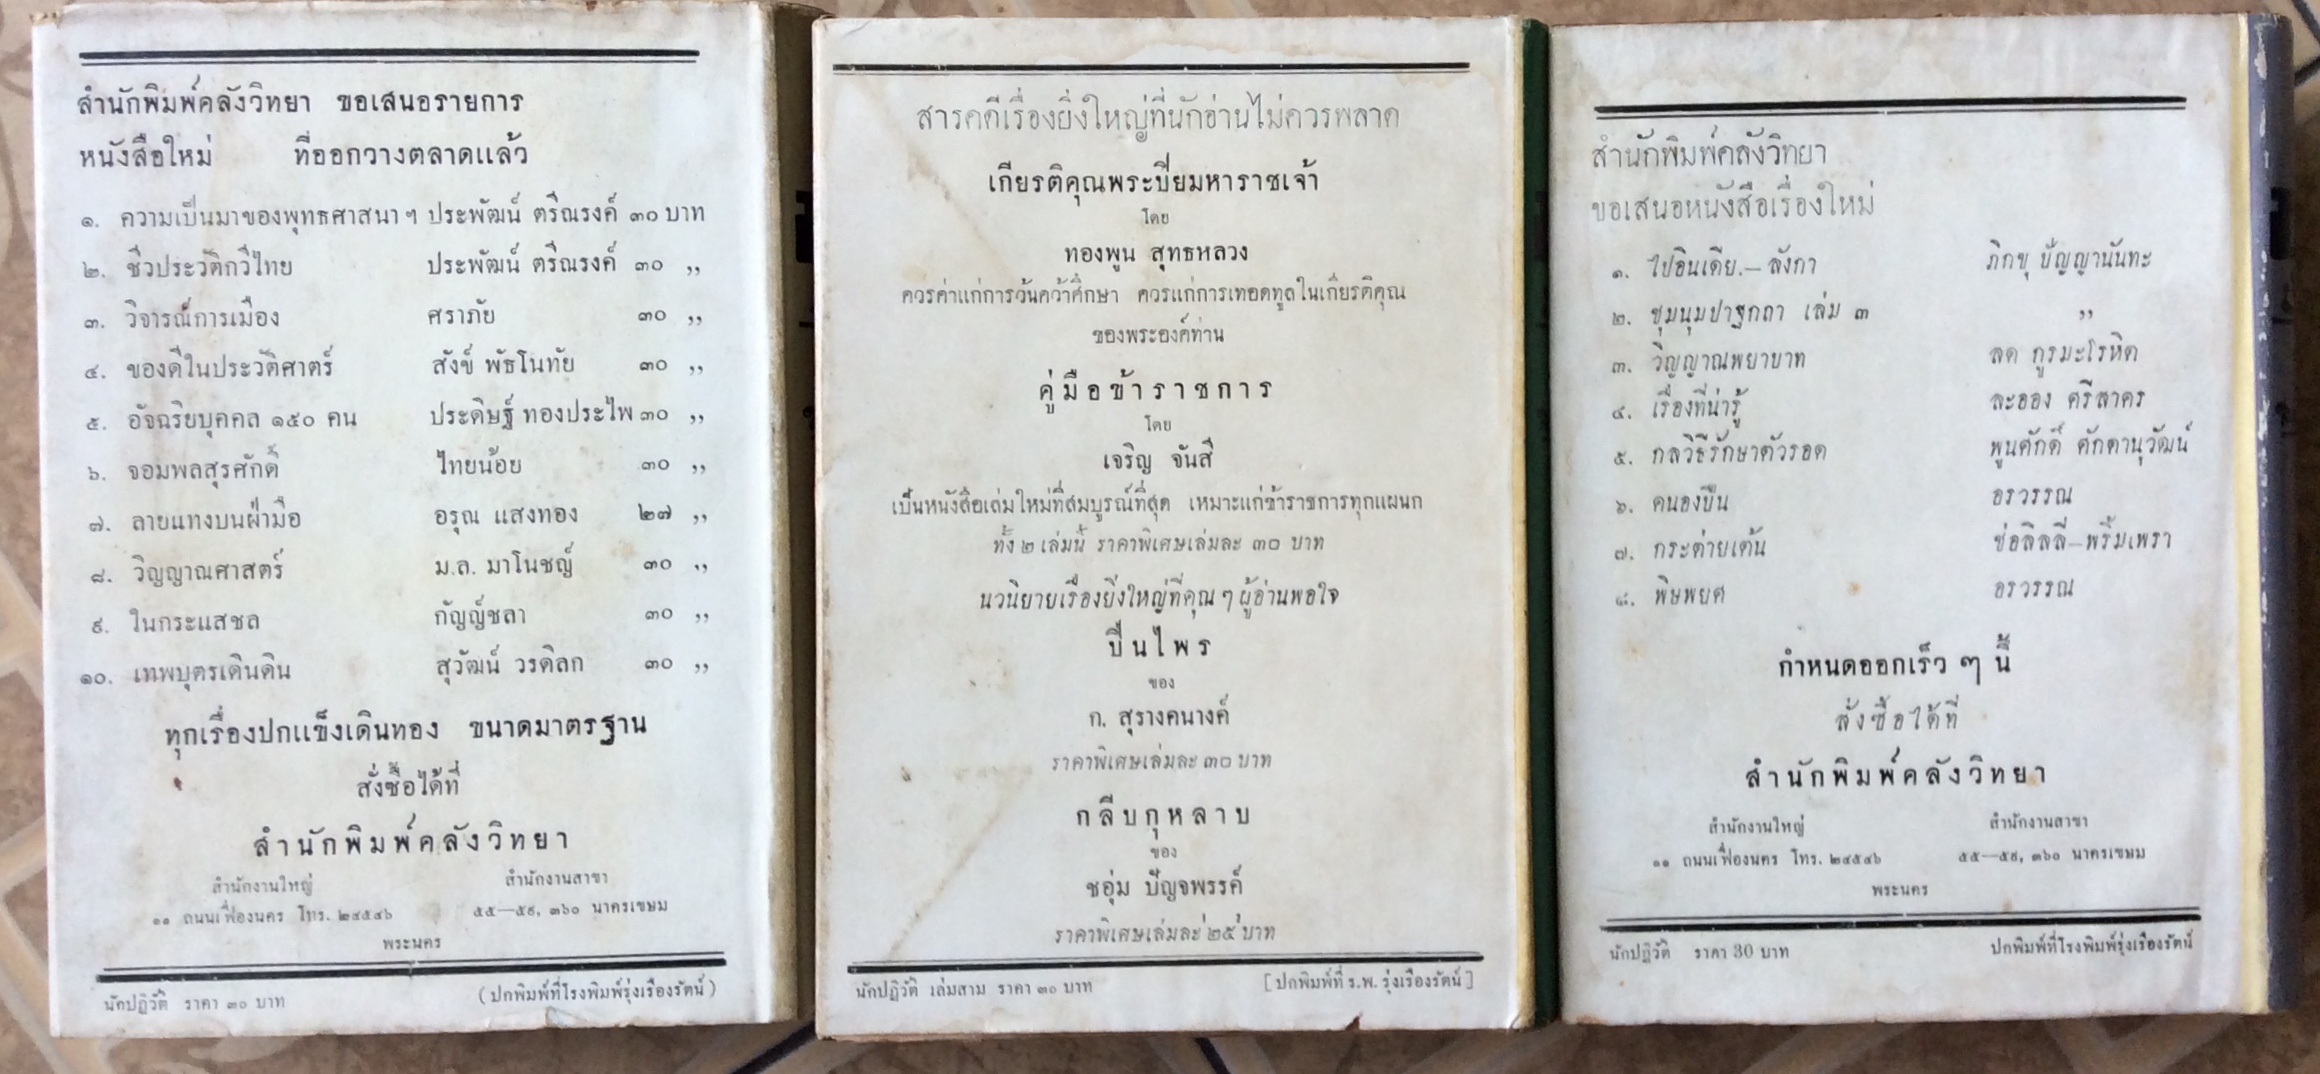 สำนักพิมพ์คลังวิทยา ขอเสนอรายการ
หนังสือใหม่ ที่ออกวางตลาดแล้ว
๑. ความเป็นมาของพุทธศาสนา ๆ ประพัฒน์ ตรีณรงค์ ๓๐ บาท
๒. ชีวประวัติกวีไทย ประพัฒน์ ตรีณรงค์ ๓๐ ,,
๓. วิจารณ์การเมือง ศราภัย ๓๐ ,,
๔. ของดีในประวัติศาตร์ สังข์ พัธโนทัย ๓๐ ,,
๕. อัจฉริยบุคคล ๑๕๐ คน ประดิษฐ์ ทองประไพ ๓๐ ,,
๖. จอมพลสุรศักดิ์ ไทยน้อย ๓๐ ,,
๗. ลายแทงบนฝ่ามือ อรุณ แสงทอง ๒๗ ,,
๘. วิญญาณศาสตร์ ม.ล. มาโนชญ์ ๓๐ ,,
๙. ในกระแสชล กัญญ์ชลา ๓๐ ,,
๑๐. เทพบุตรเดินดิน สุวัฒน์ วรดิลก ๓๐ ,,
ทุกเรื่องปกแข็งเดินทอง ขนาดมาตรฐาน
สั่งซื้อได้ที่
สำนักพิมพ์คลังวิทยา
สำนักงานใหญ่ สำนักงานสาขา
๑๑ ถนนเฟื่องนคร โทร. ๒๔๕๔๖ ๕๕—๕๙, ๓๖๐ นาครเขษม
พระนคร
นักปฏิวัติ ราคา ๓๐ บาท (ปกพิมพ์ที่โรงพิมพ์รุ่งเรืองรัตน์)
สารคดีเรื่องยิ่งใหญ่ที่นักอ่านไม่ควรพลาด
เกียรติคุณพระปิยมหาราชเจ้า
โดย
ทองพูน สุทธหลวง
ควรค่าแก่การวันคว้าศึกษา ควรแก่การเทอดทูลในเกียรติคุณ
ของพระองค์ท่าน
คู่มือข้าราชการ
โดย
เจริญ จันสี
เป็นหนังสือเล่มใหม่ที่สมบูรณ์ที่สุด เหมาะแก่ข้าราชการทุกแผนก
ทั้ง ๒ เล่มนี้ ราคาพิเศษเล่มละ ๓๐ บาท
นวนิยายเรื่องยิ่งใหญ่ที่คุณ ๆ ผู้อ่านพอใจ
ปิ่นไพร
ของ
ก. สุรางคนางค์
ราคาพิเศษเล่มละ ๓๐ บาท
กลีบกุหลาบ
ของ
ชอุ่ม ปัญจพรรค์
ราคาพิเศษเล่มละ ๒๕ บาท
นักปฏิวัติ เล่มสาม ราคา ๓๐ บาท [ปกพิมพ์ที่ ร.พ. รุ่งเรืองรัตน์]
สำนักพิมพ์คลังวิทยา
ขอเสนอหนังสือเรื่องใหม่
๑. ไปอินเดีย.—ลังกา ภิกขุ ปัญญานันทะ
๒. ชุมนุมปาฐกถา เล่ม ๓ ,,
๓. วิญญาณพยาบาท ลด กูรมะโรหิต
๔. เรื่องที่น่ารู้ ละออง ศรีสาคร
๕. กลวิธีรักษาตัวรอด พูนศักดิ์ ศักดานุวัฒน์
๖. คนองปืน อรวรรณ
๗. กระต่ายเต้น ช่อลิลลี่—พริ้มเพรา
๘. พิษพยศ อรวรรณ
กำหนดออกเร็ว ๆ นี้
สั่งซื้อได้ที่
สำนักพิมพ์คลังวิทยา
สำนักงานใหญ่ สำนักงานสาขา
๑๑ ถนนเฟื่องนคร โทร. ๒๔๕๔๖ ๕๕—๕๙, ๓๖๐ นาครเขษม
พระนคร
นักปฏิวัติ ราคา 30 บาท ปกพิมพ์ที่โรงพิมพ์รุ่งเรืองรัตน์